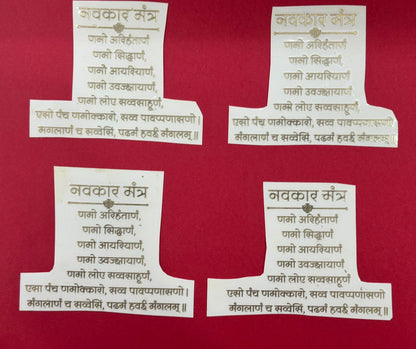 नवकार मंत्र
णमो अरिहंताणं,
णमो सिद्धाणं,
णमो आयरियाणं,
णमो उवज्झायाणं,
णमो लोए सव्वसाहूणं,
एसो पंच णमोक्कारो, सव्व पावप्पणासणो।
मंगलाणं च सव्वेसिं, पढमं हवई मंगलम्॥
नवकार मंत्र
णमो अरिहंताणं,
णमो सिद्धाणं,
णमो आयरियाणं,
णमो उवज्झायाणं,
णमो लोए सव्वसाहूणं,
एसो पंच णमोक्कारो, सव्व पावप्पणासणो।
मंगलाणं च सव्वेसिं, पढमं हवई मंगलम्॥
नवकार मंत्र
णमो अरिहंताणं,
णमो सिद्धाणं,
णमो आयरियाणं,
णमो उवज्झायाणं,
णमो लोए सव्वसाहूणं,
एसो पंच णमोक्कारो, सव्व पावप्पणासणो।
मंगलाणं च सव्वेसिं, पढमं हवई मंगलम्॥
नवकार मंत्र
णमो अरिहंताणं,
णमो सिद्धाणं,
णमो आयरियाणं,
णमो उवज्झायाणं,
णमो लोए सव्वसाहूणं,
एसो पंच णमोक्कारो, सव्व पावप्पणासणो।
मंगलाणं च सव्वेसिं, पढमं हवई मंगलम्॥